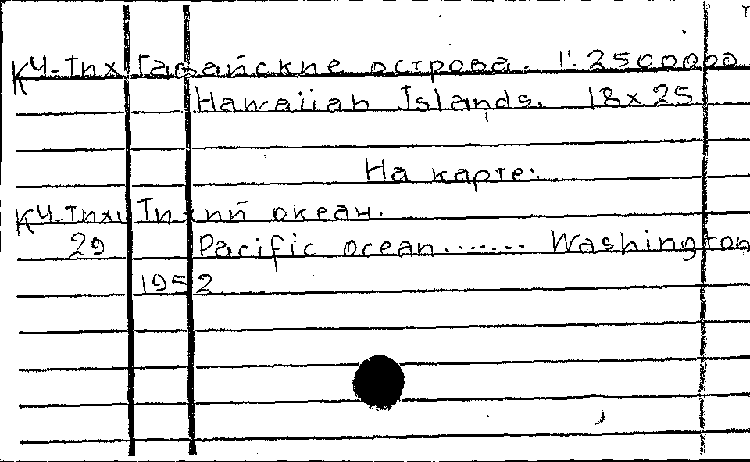 КЧ-Тих Гавайские острова. 1:2500000
Hawaiian Islands. 18x25
На карте:
КЧ-Тихи Тихий океан.
29 Pacific ocean....... Washington
1952